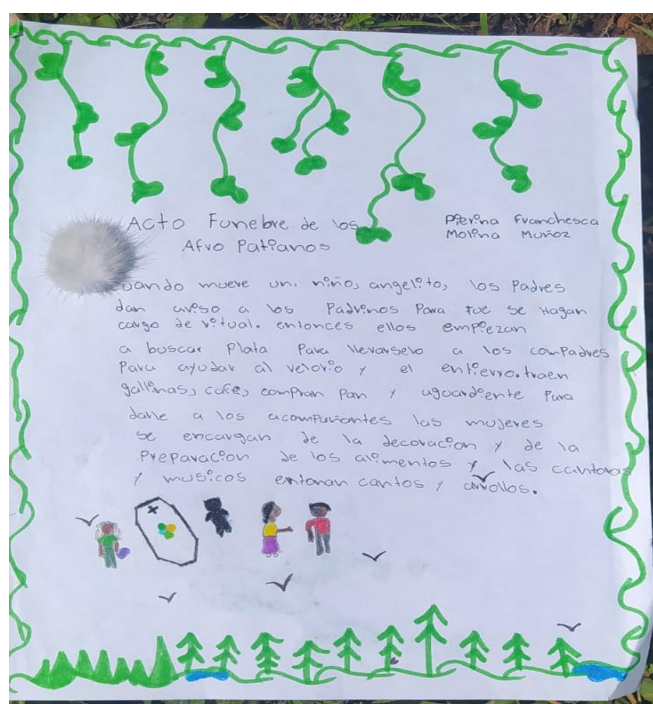 Acto Funebre de los
Afro Patianos
Pierina Franchesca
Molina Muñoz
uando muere un niño, angelito, los Padres
dan aviso a los Padrinos Para que se Hagan
cargo de ritual. entonces ellos empiezan
a buscar Plata Para llevarselo a los compadres
Para ayudar al velorio y el entierro. traen
gallinas, cafe, compran Pan y aguardiente Para
darle a los acompañantes las mujeres
se encargan de la decoracion y de la
Preparacion de los alimentos y las cantoras
y musicos entonan cantos y arrollos.